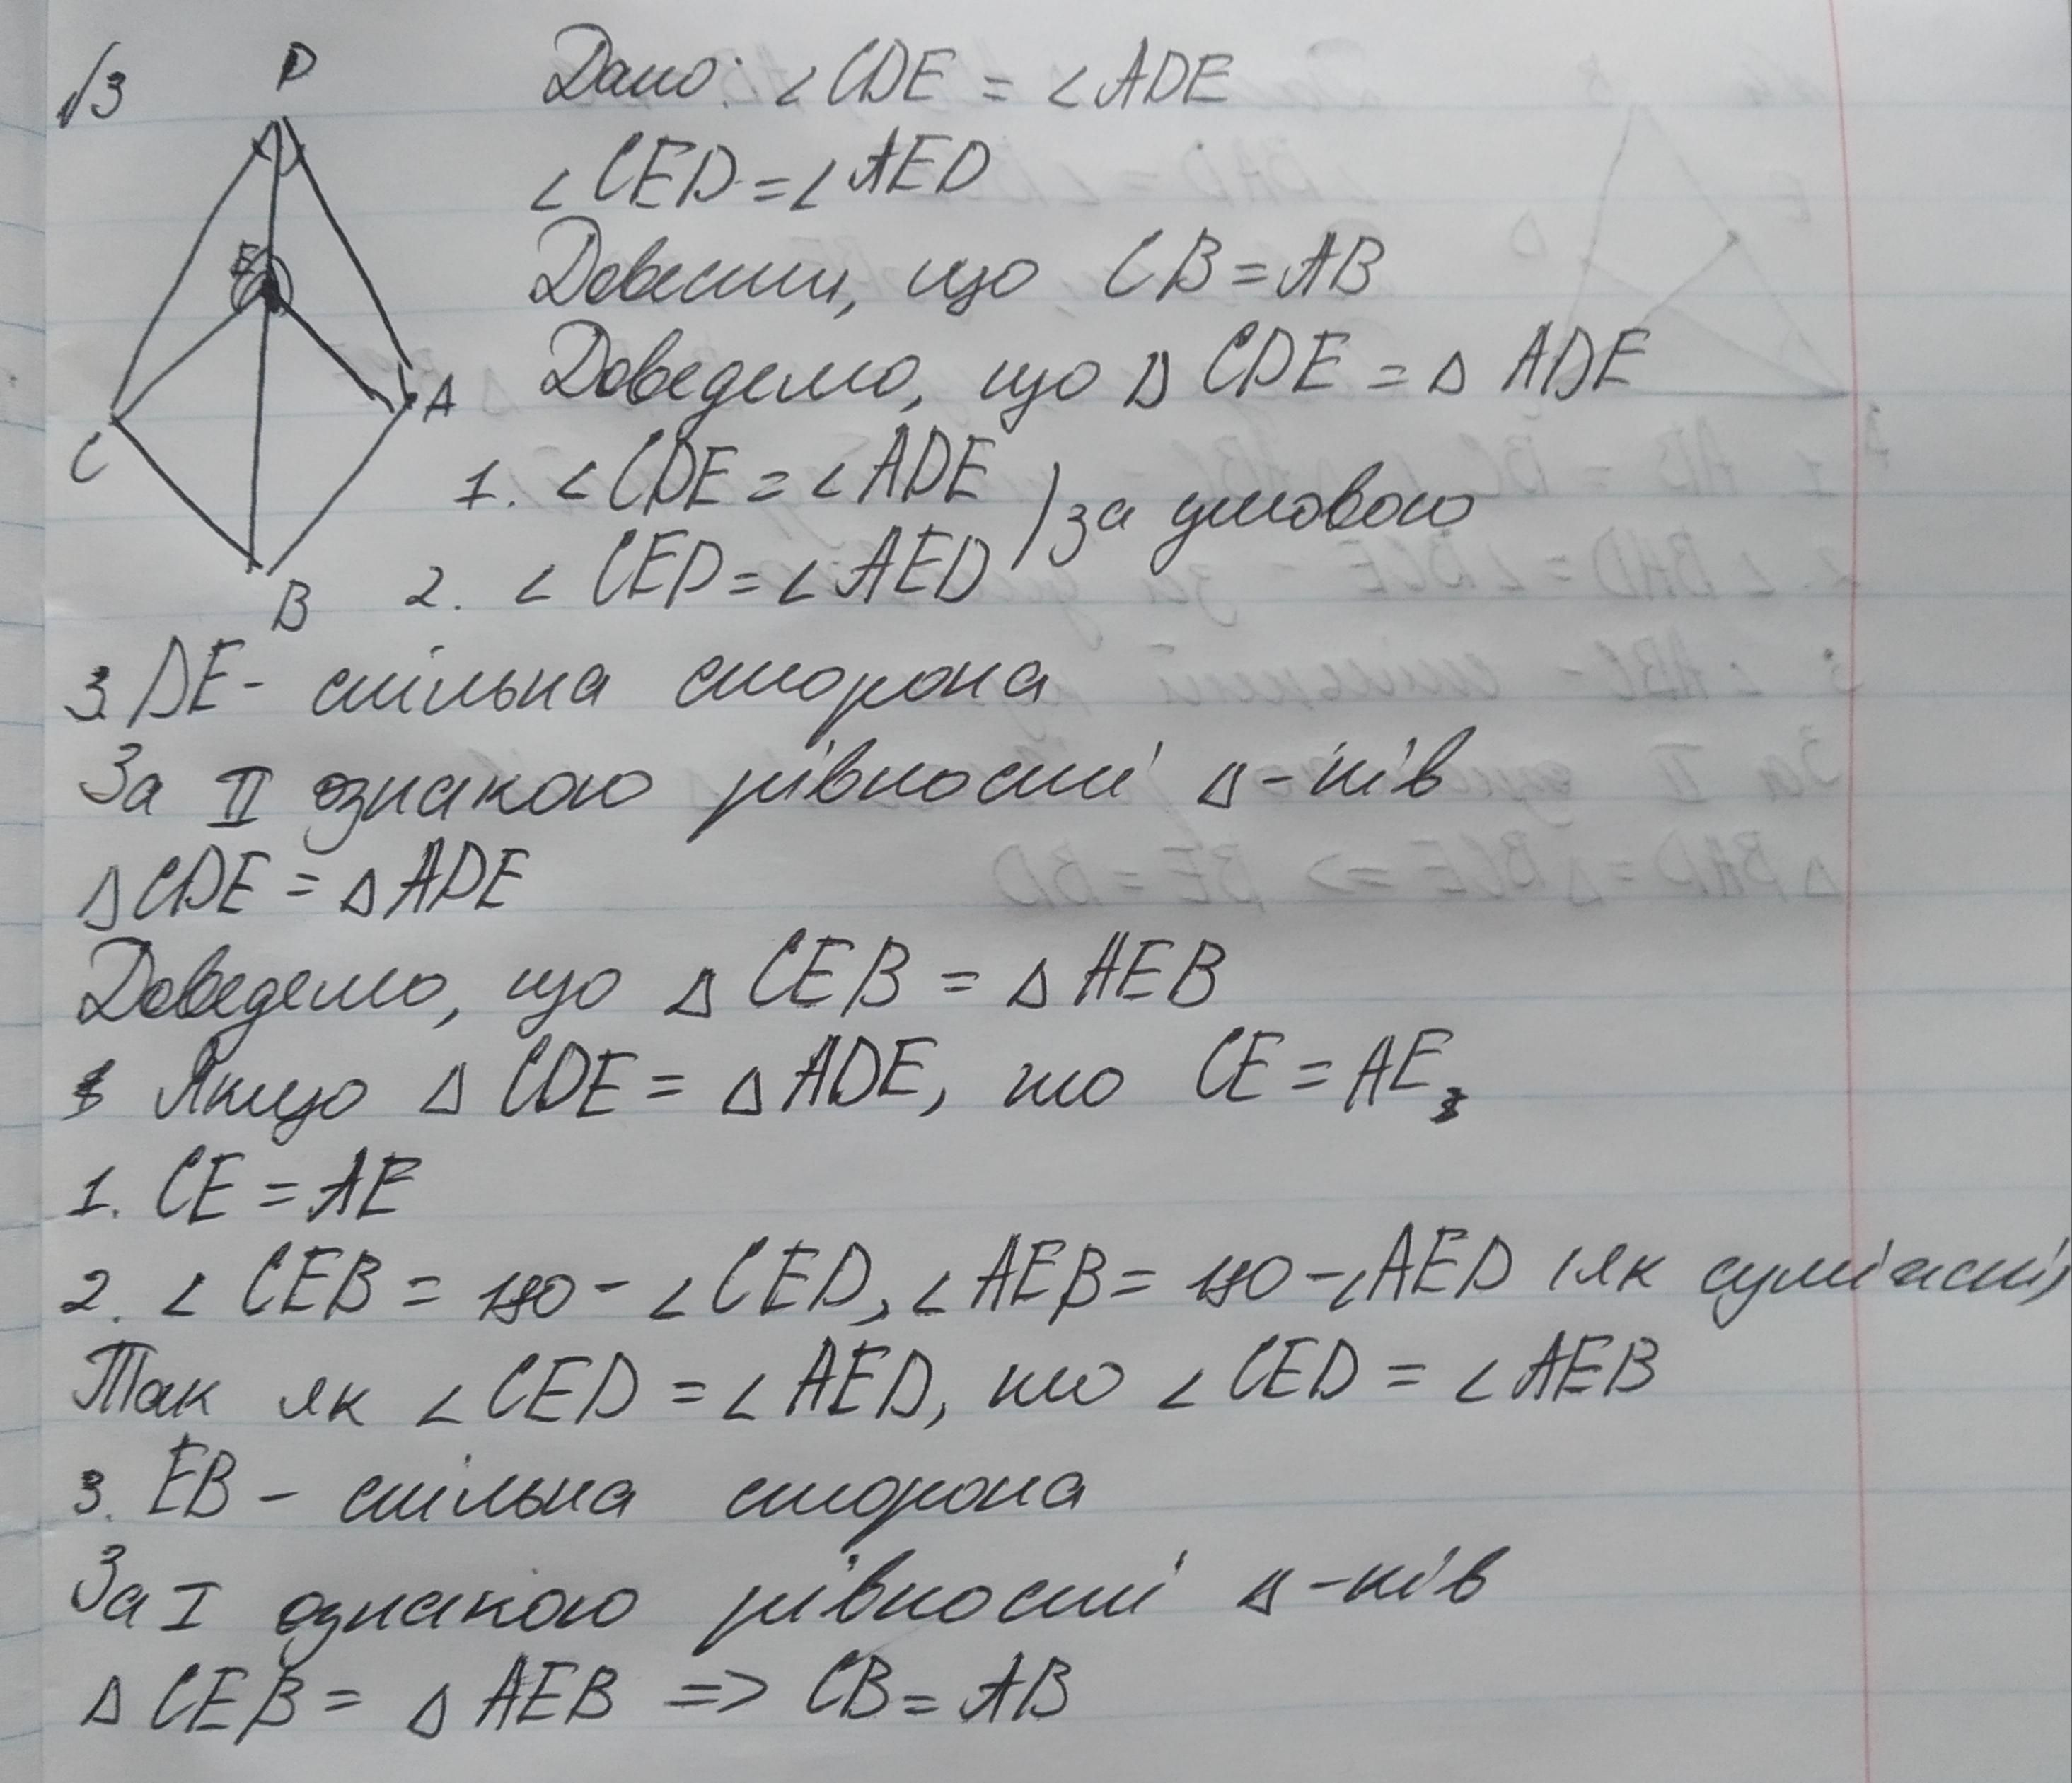 √3
D
E
C
A
B
Дано: ∠CDE = ∠ADE
∠CED = ∠AED
Довести, що CB = AB
Доведемо, що Δ CDE = Δ ADE
1. ∠CDE = ∠ADE
2. ∠CED = ∠AED ) за умовою
3. DE - спільна сторона
За II ознакою рівності Δ-ків
ΔCDE = ΔADE
Доведемо, що Δ CEB = Δ AEB
Якщо Δ CDE = ΔADE, то CE = AE
1. CE = AE
2. ∠CEB = 180 - ∠CED, ∠AEB = 180 - ∠AED (як суміжні)
Так як ∠CED = ∠AED, то ∠CED = ∠AEB
3. EB - спільна сторона
За I ознакою рівності Δ-ків
Δ CEB = Δ AEB => CB = AB